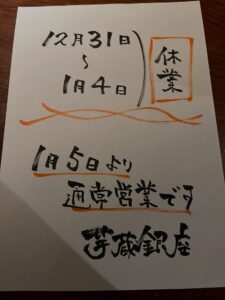 12月31日
〜
1月4日
休業
1月5日より
通常営業です
蔵銀座